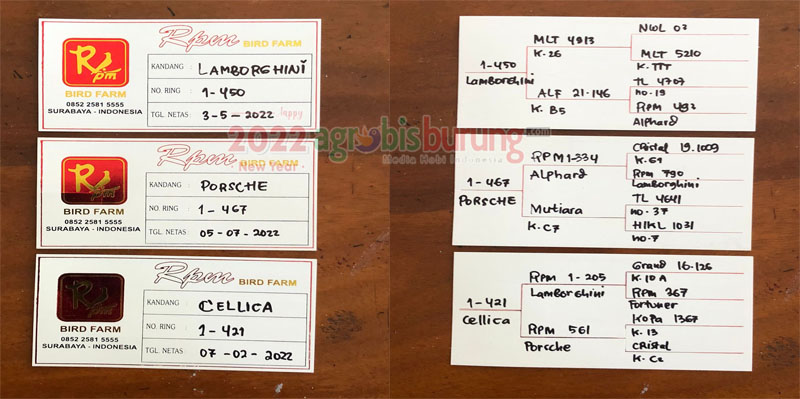 Rpm BIRD FARM
Rpm
BIRD FARM
0852 2581 5555
SURABAYA - INDONESIA
KANDANG : LAMBORGHINI
NO. RING : 1-450
TGL. NETAS : 3-5-2022
Rpm BIRD FARM
BIRD FARM
0852 2581 5555
SURABAYA - INDONESIA
KANDANG : PORSCHE
NO. RING : 1-467
TGL. NETAS : 05-07-2022
Rpm BIRD FARM
BIRD FARM
0852 2581 5555
SURABAYA - INDONESIA
KANDANG : CELLICA
NO. RING : 1-421
TGL. NETAS : 07-02-2022
2022 agrobisburung.com
Media Hobi Indonesia
Happy
New Year
1-450
Lamborghini
MLT 4913
K. 26
ALF 21-146
K. B5
NWL 03
MLT 5210
K. TTT
TL 4707
no-19
RPM 493
Alphard
1-467
PORSCHE
RPM 1-334
Alphard
Mutiara
K. C7
Cristal 19.1009
K. 61
Rpm 790
Lamborghini
TL 4641
no. 37
HIKL 1031
no-7
1-421
Cellica
Rpm 1-205
Lamborghini
RPM 561
Porsche
Grand 16-126
K. 10 A
Rpm 367
Fortuner
Kopa 1367
K. 13
CRistal
K. C2